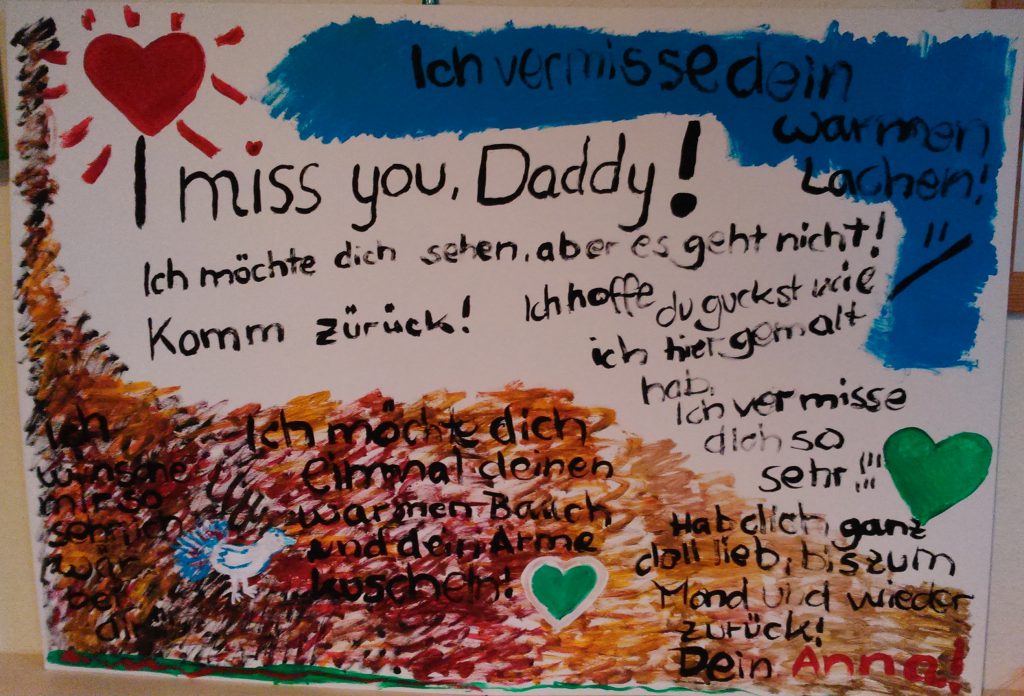 Ich vermisse dein
warmen
Lachen!
I miss you, Daddy!
Ich möchte dich sehen, aber es geht nicht!
Komm zürück!
Ich hoffe du guckst wie
ich hier gemalt
hab.
Ich vermisse
dich so
sehr!!!
Ich
wünsche
mir so
sehr ich
wär
bei
dir
Ich möchte dich
einmal deinen
warmen Bauch
und dein Arme
kuscheln!
Hab dich ganz
doll lieb, bis zum
Mond und wieder
zurück!
Dein Anne!